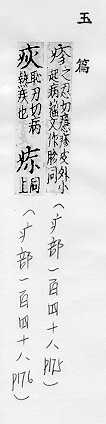 玉篇
疹之忍切癮疹皮外小
起病瘤又作胗同
(疒部一百四十八 P175)
疢恥刃切病
熱疾也
同上
(疒部一百四十八 P176)